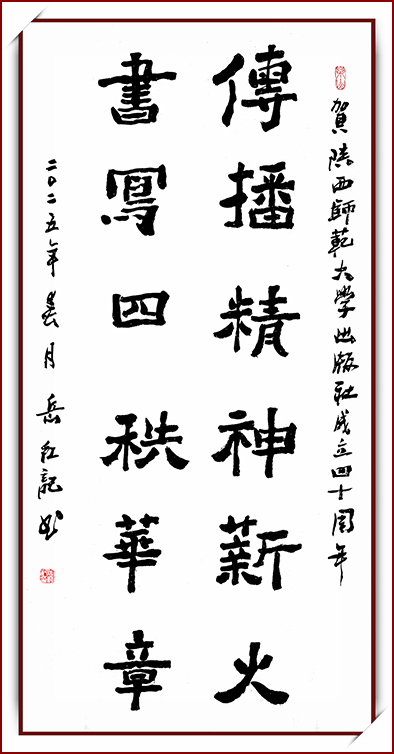 賀陝西師範大學出版社成立四十周年
傳播精神薪火
書寫四秩華章
二〇二五年春月岳紅記